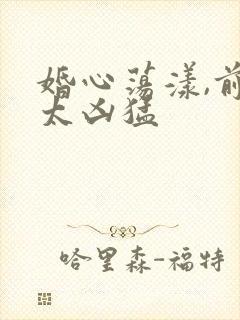 婚心荡漾,前
太凶猛
哈里森-福特